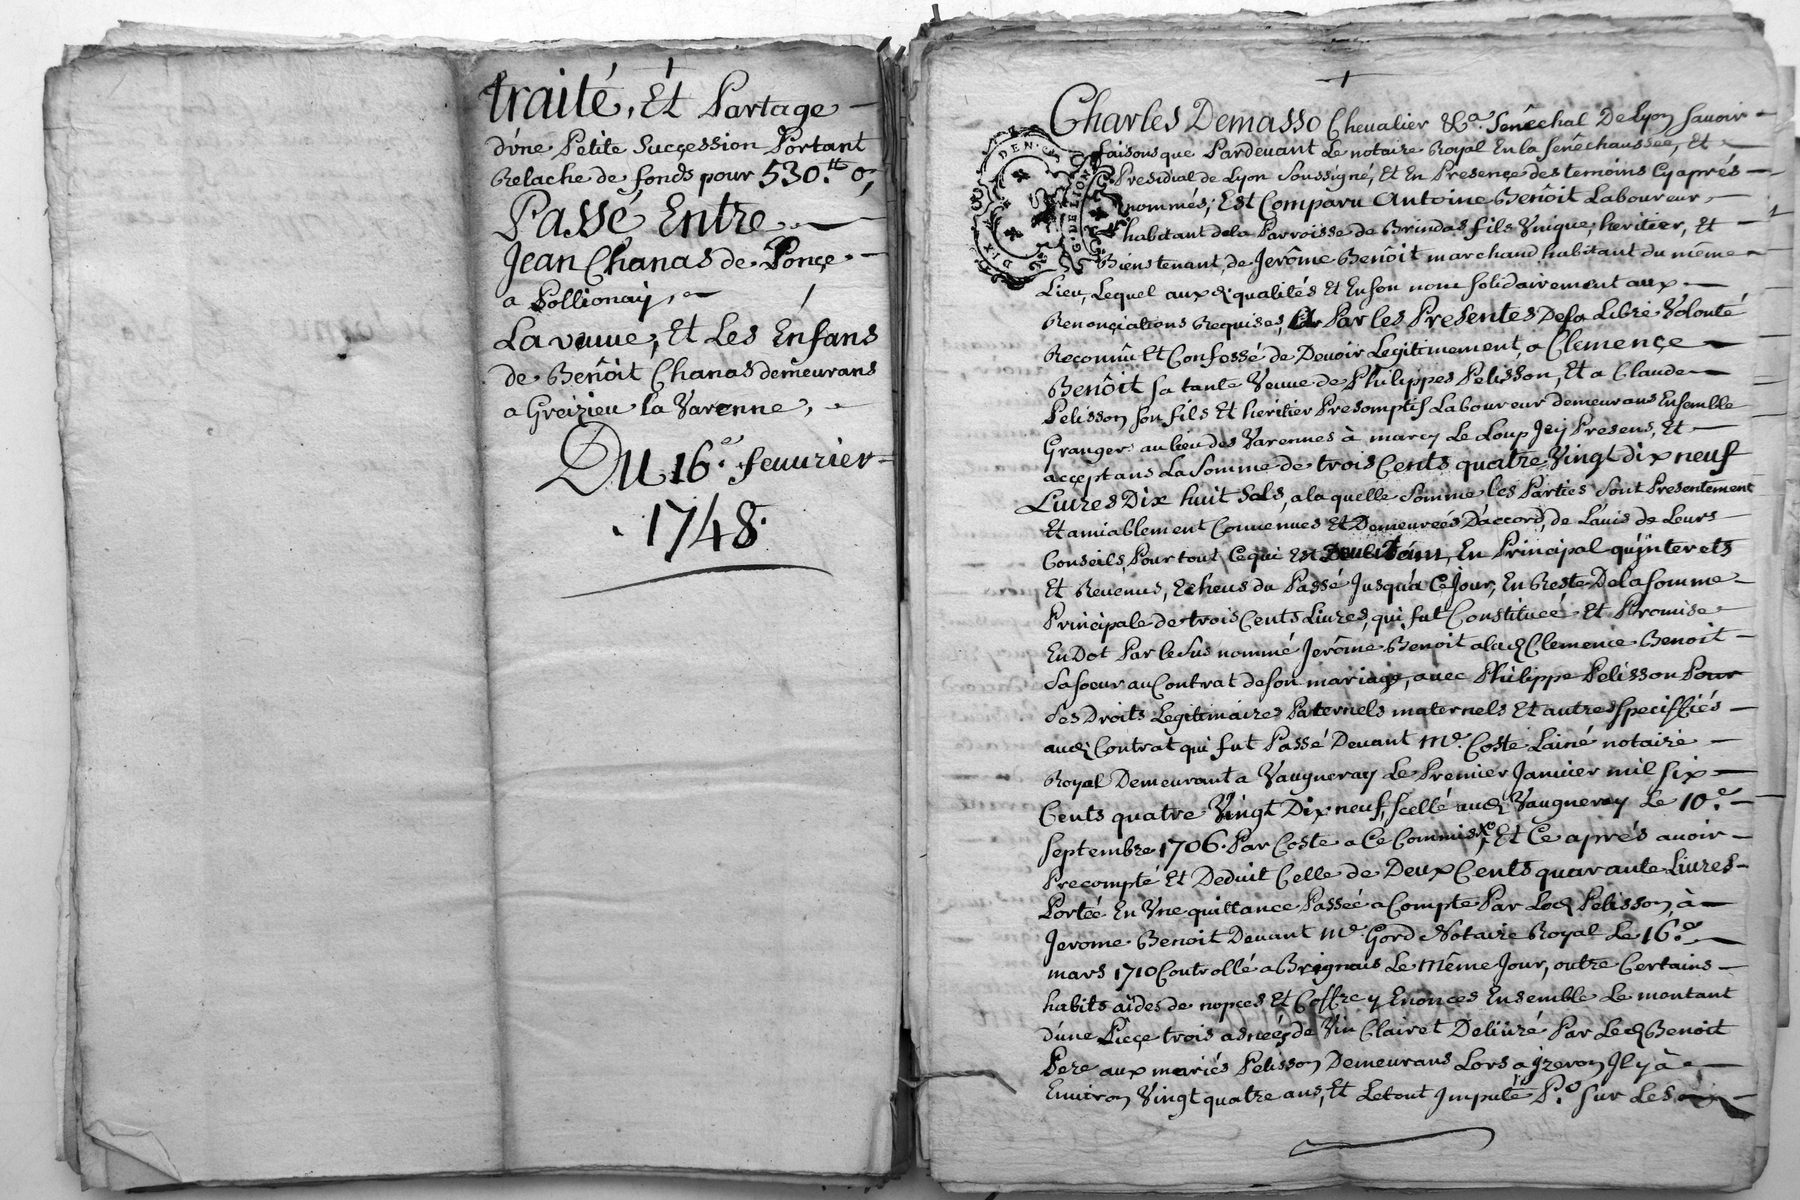 traité, Et Partage
d'vne Petite Succession Portant
Relache de fonds pour 530.tt
Passé Entre
Jean Chanas de Ponçe
a Pollionaÿ,
La veuue, Et Les Enfans
de Benôit Chanas demeurans
a Greizieu la Varenne,
Du 16.e feuurier
1748.
Charles Demasso Chevalier &a. Senéchal De Lyon Savoir
faisons que Pardevant Le notaire Royal En la Senéchaussée, Et
Presidial de Lyon Soussigné, Et En Presençe des temoins Cy aprés
nommés; Est Comparu Antoine Benôit Laboureur
habitant dela Parroisse de Brindas fils Vnique, heritier, Et
Bien tenant, de Jerôme Benôit marchand habitant du même
Lieu, Lequel aux d. qualités Et En son nom solidairement aux
Renonçiations Requises, Par les Presentes De sa Libre Volonté
Reconnû Et Confessé de Devoir Legitimement, a Clemençe
Benôit sa tante Veuve de Philippes Pelisson, Et a Claude
Pelisson son fils Et heritier Presomptif Laboureur demeurans Ensemble
Granger au lieu des Varennes à marcy Le Loup Jcy Presens, Et
acçeptans La Somme de trois Cents quatre Vingt dix neuf
Livres Dix huit Sols, a la quelle Somme les Parties Sont Presentement
Et amiablement Convenues Et Demeureés D'accord, de L'avis de Leurs
Conseils, Pour tout Ce qui Est En Principal qu'jnterets
Et Revenus, Echeus du Passé Jusqu'a Ce Jour, En Reste De la Somme
Principale de trois Cents Livres, qui fut Constituée Et Promise
En Dot Par le Sus nommé Jerôme Benoit a la d. Clemence Benoit
Sa soeur au Contrat de son mariage, avec Philippe Pelisson Pour
Ses Droits Legitimaires Paternels maternels Et autres specifflés
au d. Contrat qui fut Passé Devant Me. Coste Lainé notaire
Royal Demeurant a Vaugneray Le Premier Janvier mil six
Cents quatre Vingt Dix neuf, scellé au d. Vaugneray Le 10.e
Septembre 1706. Par Coste a Ce Commis, Et Ce aprés avoir
Precompté Et Deduit Celle de Deux Cents quarante Livres
Portée En Vne quittance Passée a Compte Par Led. Pelisson à
Jerome Benoit Devant Me. Gord Notaire Royal Le 16.e
mars 1710 Controllé a Brignais Le même Jour, outre Certains
habits aides de nopces Et Coffre y Enonces Ensemble Le montant
d'une Piêçe trois asnées de Vin Clairet Delivré Par Led. Benoit
Pere aux mariés Pelisson Demeurans Lors a jzeron Jl y à
Environ Vingt quatre ans, Et Le tout Jmputé P.o sur Les